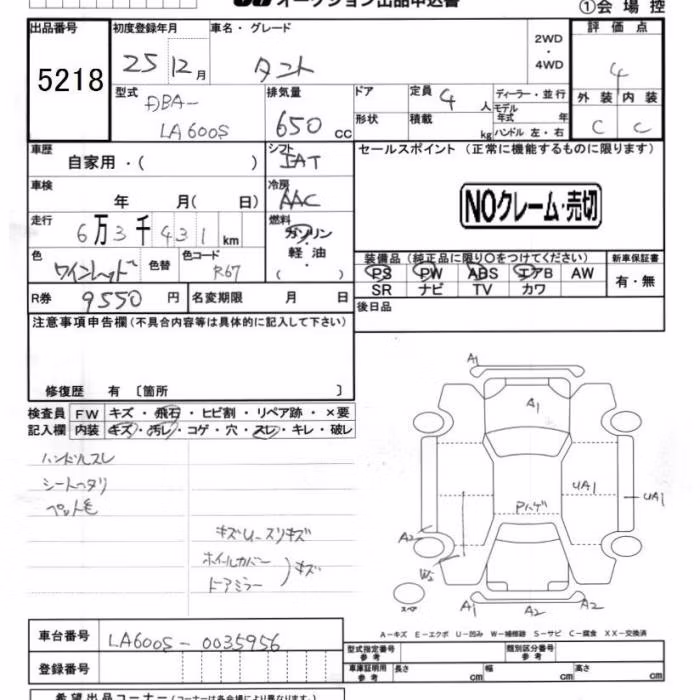 オークション出品申込書
①会場控
出品番号 初度登録年月 車名・グレード 2WD・4WD 評価点
5218 25 12月 タント 4
型式 DBA- LA600S 排気量 650 CC ドア 定員 4人 ディーラー・並行 外装 内装
形状 積載 kg モデル年式 年 ハンドル 左・右 C C
車歴 自家用・( ) シフト IAT セールスポイント(正常に機能するものに限ります)
車検 年 月( 日) 冷房 AAC NOクレーム・売切
走行 6万3千431km 燃料 ガソリン・軽油・( )
色 ワインレッド 色替 色コード R67 装備品(純正品に限り○をつけてください) 新車保証書
PS PW ABS エアB AW 有・無
SR ナビ TV カワ
R券 9550円 名変期限 月 日 後日品
注意事項申告欄(不具合内容等は具体的に記入して下さい)
修復歴 有 〔箇所 〕
検査員 FW キズ・飛石・ヒビ割・リペア跡・×要
記入欄 内装 キズ・汚レ・コゲ・穴・スレ・キレ・破レ
ハンドルスレ
シートヘタリ
ペット毛
キズUースリキズ
ホイールカバー
ドアミラー キズ
A1
A1
UA1
UA1
Pハゲ
A2
W2
スペア
A1 A2 A2
A−キズ E−エクボ U−凹み W−補修跡 S−サビ C−腐食 XX−交換済
車台番号 LA600S-0035956
登録番号
型式指定番号 参考 類別区分番号 参考
車庫証明用 参考 長さ cm 幅 cm 高さ cm
希望出品コーナー(コーナーは各会場により異なります)